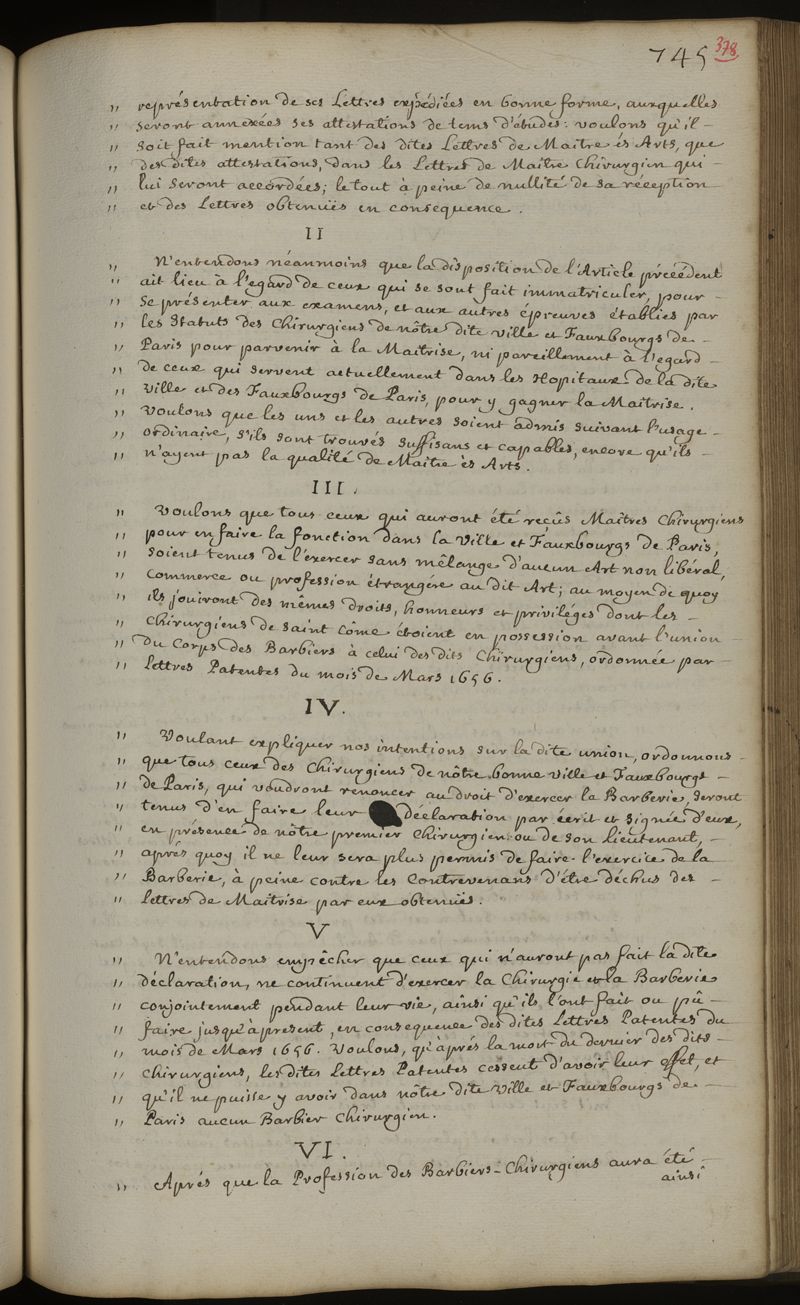 745 378.
,, représentation de ses Lettres expédiées en bonne forme, auxquelles
,, seront annexées ses attestations de tems d'études: voulons qu'il -
,, soit fait mention tant des dites Lettres de Maitre ès Arts, que
,, des dites attestations, dans les Lettres de Maitre Chirurgien qui -
,, lui seront accordées; le tout à peine de nullité de sa réception
,, et des Lettres obtenuës en consequence.
II
,, N'entendons néanmoins que la disposition de l'Article précédent
,, ait lieu à l'egard de ceux qui se sont fait immatriculer, pour -
,, se présenter aux examens, et aux autres épreuves établies par
,, les Statuts des Chirurgiens de nôtre dite ville et Fauxbourgs de -
,, Paris pour parvenir à la Maitrise, ni pareillement à l'egard -
,, de ceux qui servent actuellement dans les Hopitaux de la dite
,, Ville et des Fauxbourgs de Paris, pour y gagner la Maitrise.
,, Voulons que les uns et les autres soient admis suivant l'usage -
,, ordinaire, s'ils sont trouvés suffisans et capables, encore qu'ils -
,, n'ayent pas la qualité de Maitre ès Arts.
III.
,, Voulons que tous ceux qui auront été reçûs Maitres Chirurgiens
,, pour en faire la fonction dans la Ville et Fauxbourgs de Paris,
,, soient tenus de l'exercer sans mêlange d'aucun Art non libéral,
,, commerce ou profession étrangére au dit Art; au moyen de quoy
,, ils jouiront des mêmes droits, honneurs et priviléges dont les -
,, Chirurgiens de saint Côme étoient en possession avant l'union -
,, du Corps des Barbiers à celui des dits Chirurgiens, ordonnée par -
,, Lettres Patentes du mois de Mars 1656.
IV.
,, Voulant expliquer nos intentions sur la dite union, ordonnons -
,, que tous ceux des Chirurgiens de nôtre bonne ville et Fauxbourgs -
,, de Paris, qui voudront renoncer au droit d'exercer la Barberie, seront
,, tenus d'en faire leur déclaration par écrit et signée d'eux,
,, en présence de nôtre premier Chirurgien ou de son Lieutenant, -
,, aprés quoy il ne leur sera plus permis de faire l'exercice de la
,, Barberie, à peine contre les Contrevenans d'être déchus des -
,, Lettres de Maitrise par eux obtenuës.
V
,, N'entendons empêcher que ceux qui n'auront pas fait la dite
,, déclaration, ne continuent d'exercer la Chirurgie et la Barberie
,, conjointement pendant leur vie, ainsi qu'ils l'ont fait ou pû -
,, faire jusqu'à present, en consequence des dites Lettres Patentes du
,, mois de Mars 1656. Voulons, qu'aprés la mort du dernier des dits -
,, Chirurgiens, les dites Lettres Patentes cessent d'avoir leur effet, et
,, qu'il ne puisse y avoir dans nôtre dite Ville et Fauxbourgs de -
,, Paris aucun Barbier Chirurgien.
VI.
,, Aprés que la Profession des Barbiers-Chirurgiens aura été -
ainsi